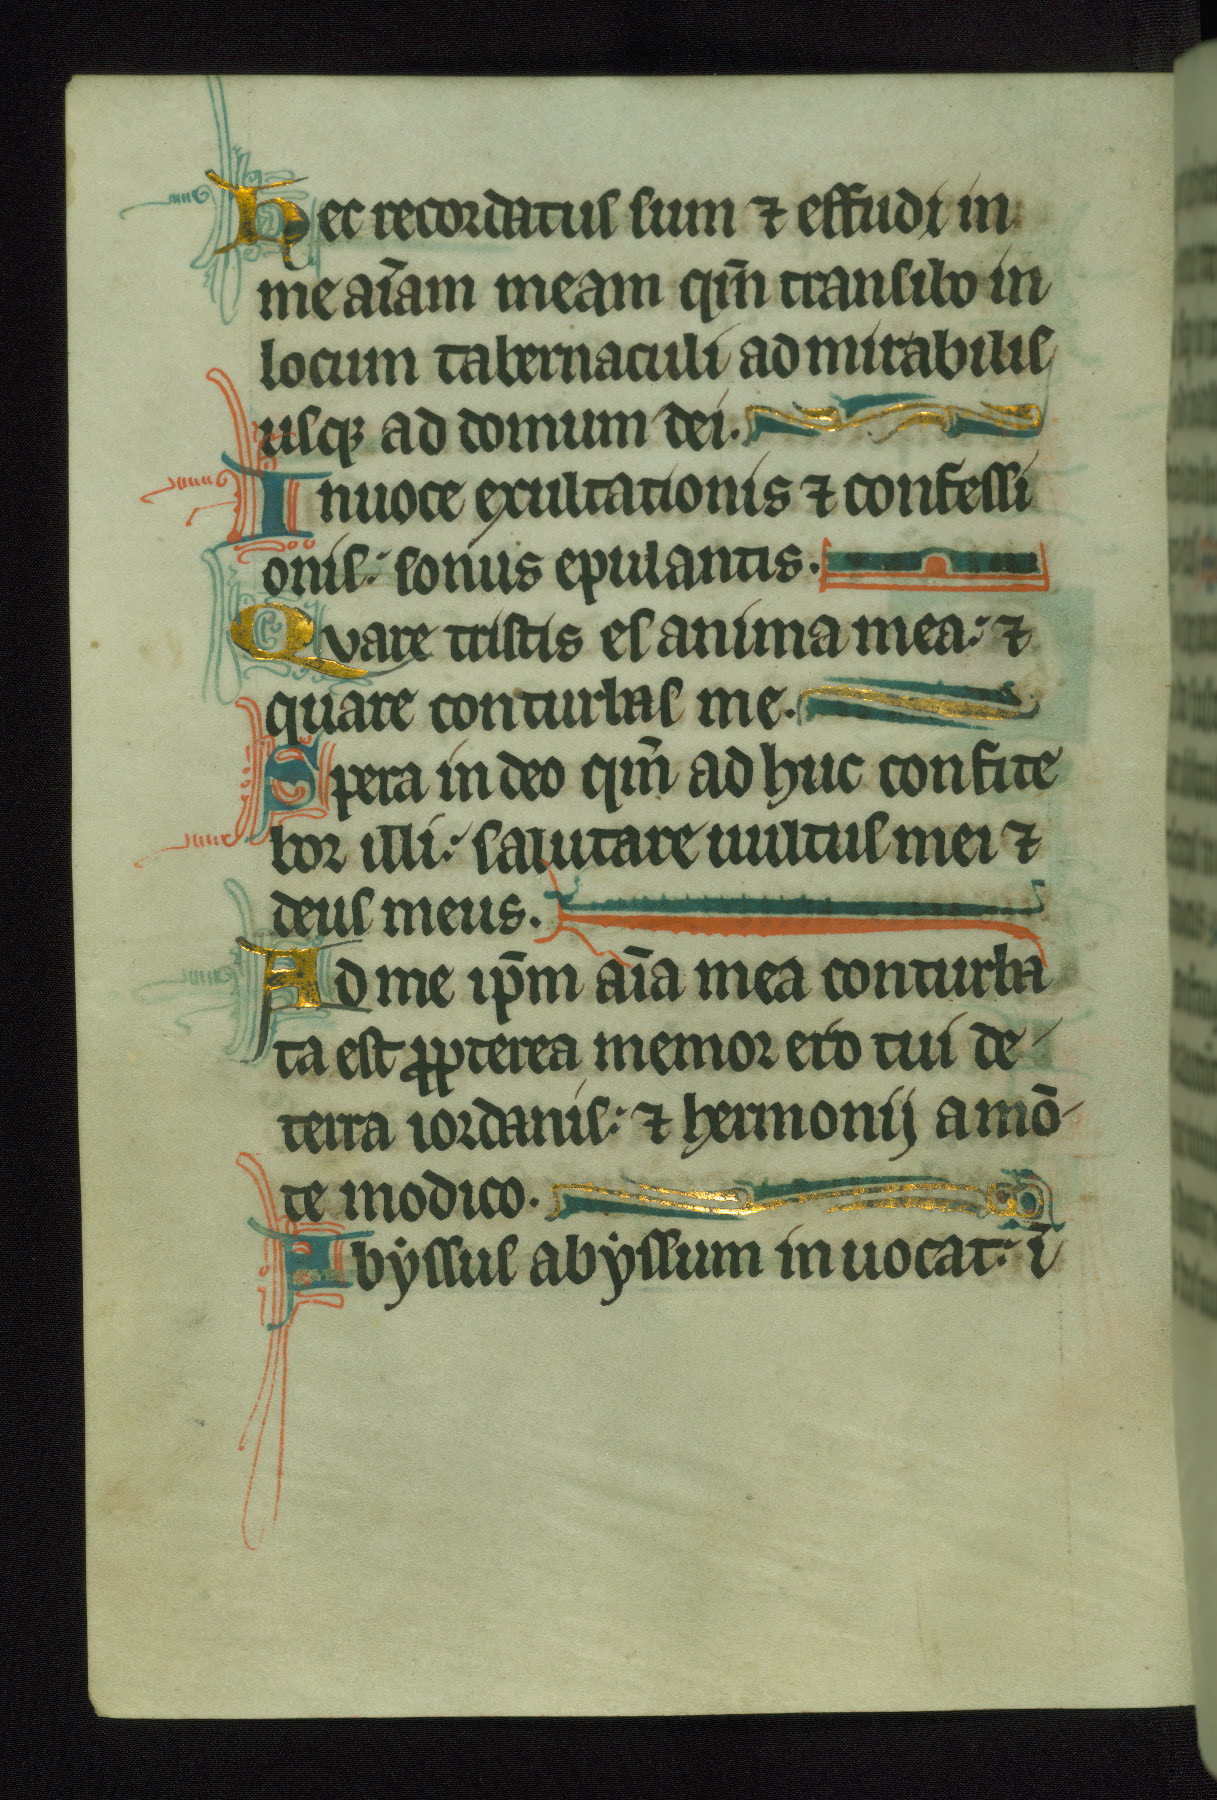 Hec recordatus sum ⁊ effudi in
me aīam meam qm̄ transibo in
locum tabernaculi admirabilis
usqꝫ ad domum dei.
In uoce exultationis ⁊ confessi
onis: sonus epulantis.
Quare tristis es anima mea: ⁊
quare conturbas me.
Spera in deo qm̄ adhuc confite
bor illi: salutare uultus mei ⁊
deus meus.
Ad me ip̄m aīa mea conturba
ta est ꝓpterea memor ero tui de
terra iordanis: ⁊ hermonij a mō
te modico.
Abẏssus abẏssum inuocat: ī